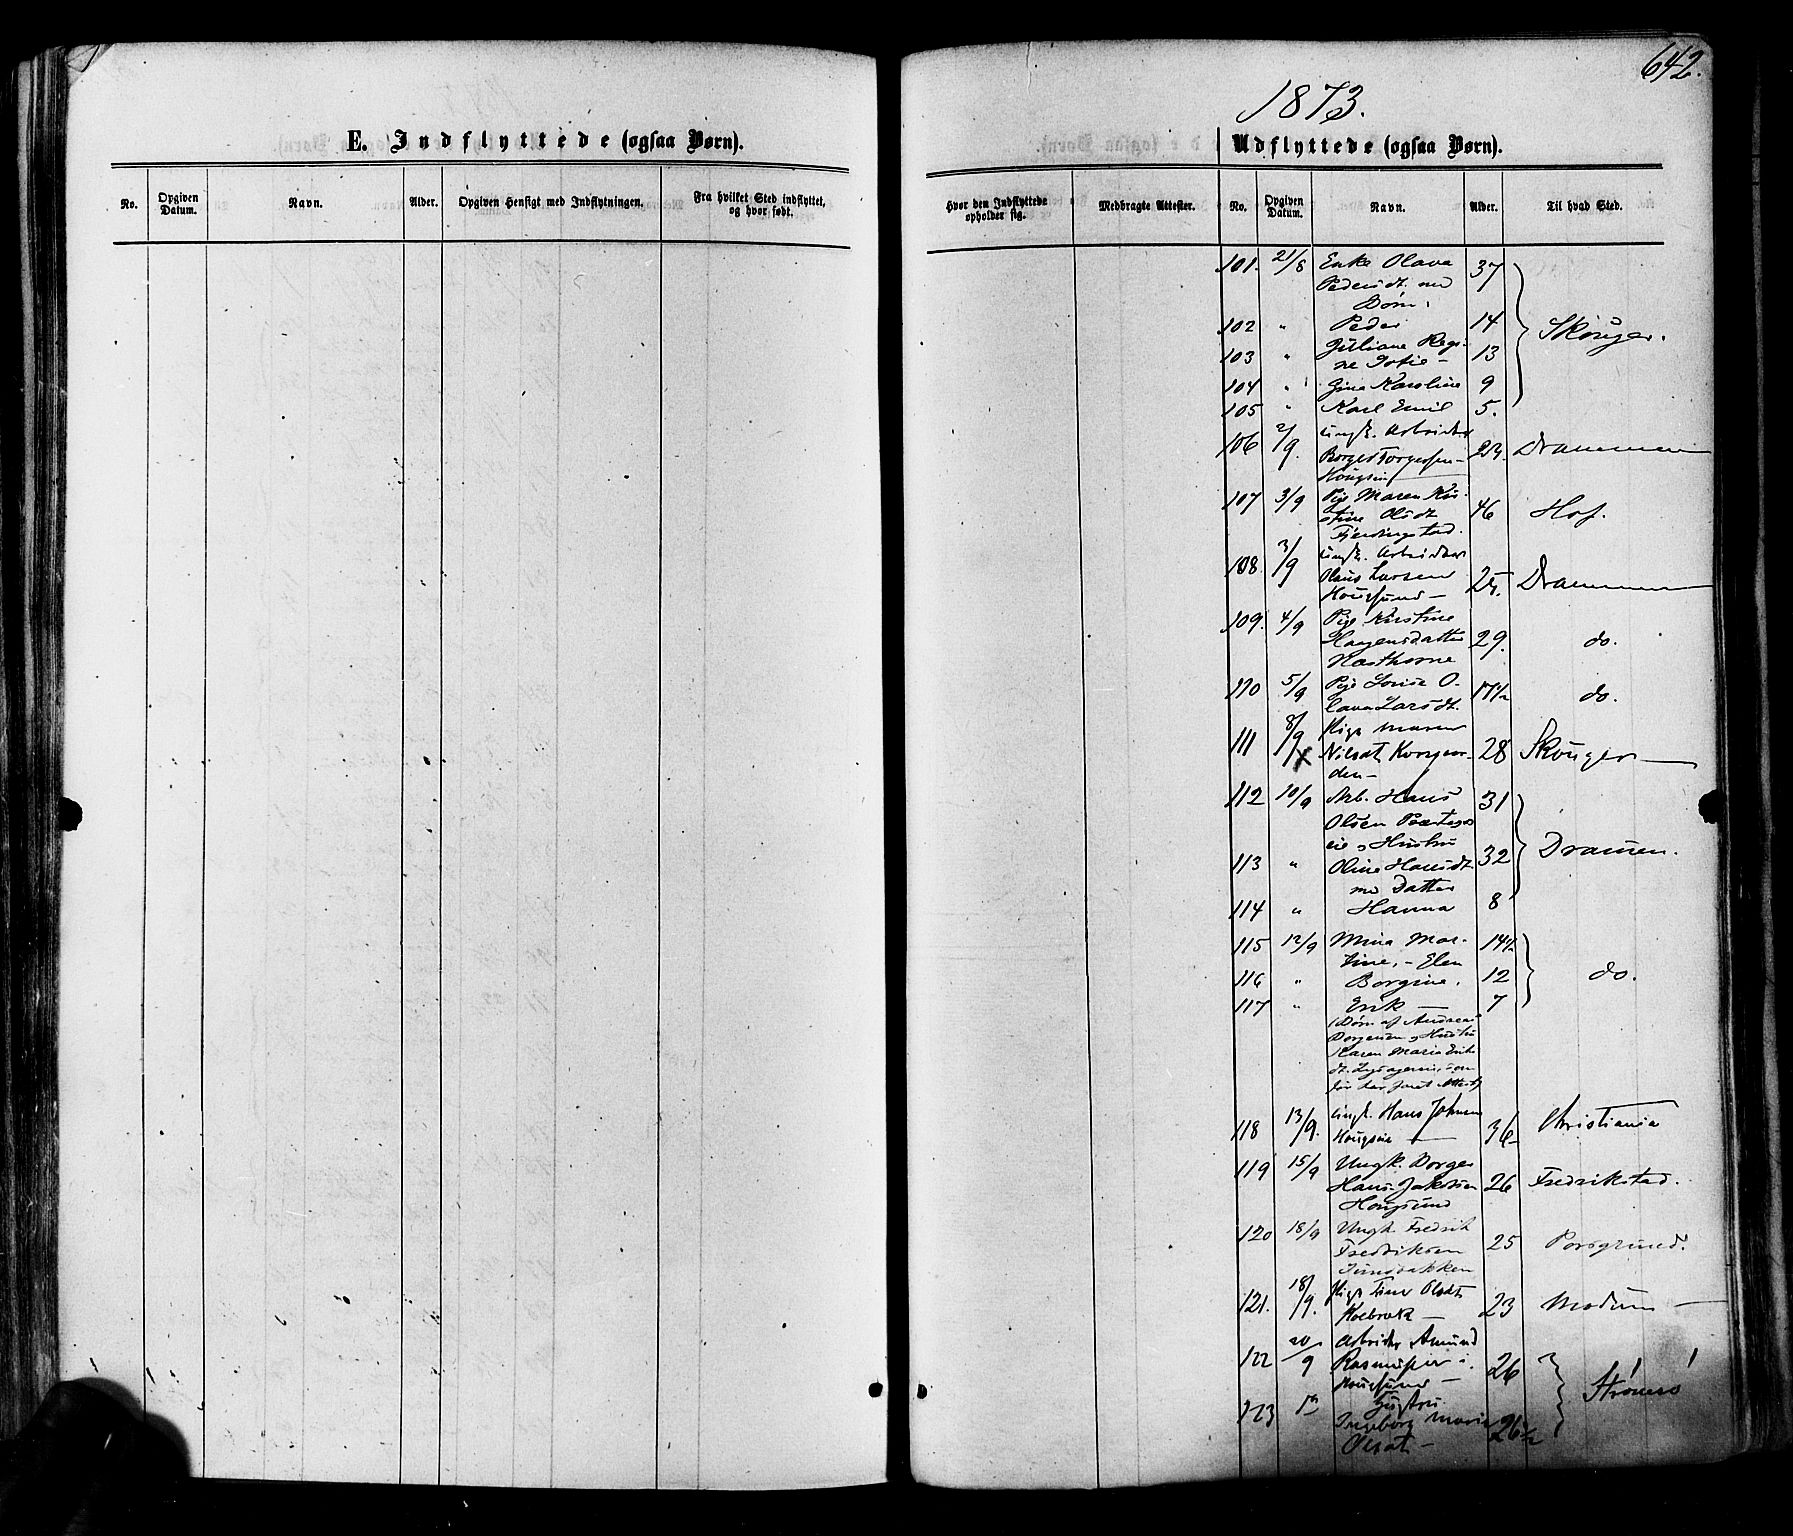 642.
1873.
E. Indflyttede (ogsaa Børn).
No.
Opgiven Datum.
Navn.
Alder.
Opgiven Hensigt med Indflytningen.
Fra hvilket Sted indflyttet, og hvor født.
Hvor den Indflyttede opholder sig.
Medbragte Attester.
Udflyttede (ogsaa Børn).
No.
Opgiven Datum.
Navn.
Alder.
Til hvad Sted.
101. 21/8 Enke Olava 37
Pedersdt. md
Børn,
102 " Peder 14 Skouger.
103 " Juliane Regi- 13
ne Sofie –
104 " Gina Karoline 9
105 " Karl Emil 5.
106 2/9. Ungk. Arbeider
Borger Torgersen – 23. Drammen
107 3/9 Pige Maren Kri- 46 Hof.
stine Olsdt
Fjerdingstad.
108 3/9 Ungk. Arbeider
Olaus Larsen 25. Drammen
Hougsund –
109. 4/9 Pige Kristine
Haagensdatter 29. do.
110 5/9 Pige Lovise O- 17 1/2 do.
lava Larsdt.
111 8/9 Pige Maren
Nilsdt. 28 Skouger
112 10/9 Arb. Hans 31
Olsen
eie & Hustru
113 " Oline Hansdt. 32 Dramen.
md Datter
114 " Hanna 8
115 12/9 Mina Mar- 14 1/2
tine, – Elen
116 " Borgine. 12 do.
117 " Erik – 7
(Børn af Andreas
Borgersen & Hustru
Karen Marie Erik
118 13/9. Ungk. Hans Johnsen 36 Christiania
Hougseie
119 15/9 Ungk. Borger
Hans. Jakobsen 26 Fredrikstad.
Hougsund
120 18/9 Ungk. Fredrik
Fredriksen 25 Porsgrund.
121. 18/9. Pige Olsdt.
23 Modum –
122 20/9 Arbeider Amund
Rasmussen i 26 Strømsø
Hougsund –
123 Hustru
Ingeborg Marie 26 1/2
Olsdt –